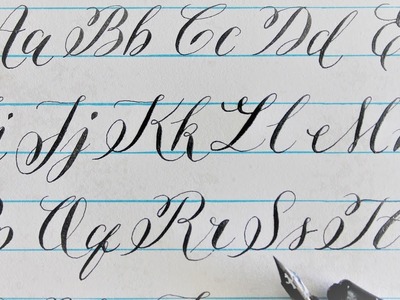 Aa Bb Cc Dd E
i Jj Kk Ll M
Qq Rr Ss Tt